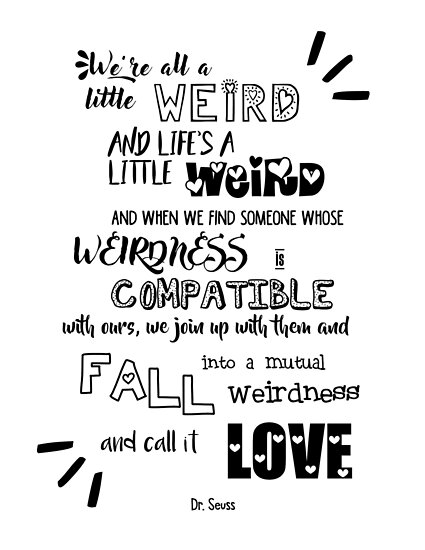 We're all a
little WEIRD
AND LIFE'S A
LITTLE WeiRD
AND WHEN WE FIND SOMEONE WHOSE
WEIRDNESS is
COMPATIBLE
with ours, we join up with them and
FALL into a mutual
weirdness
and call it LOVE
Dr. Seuss